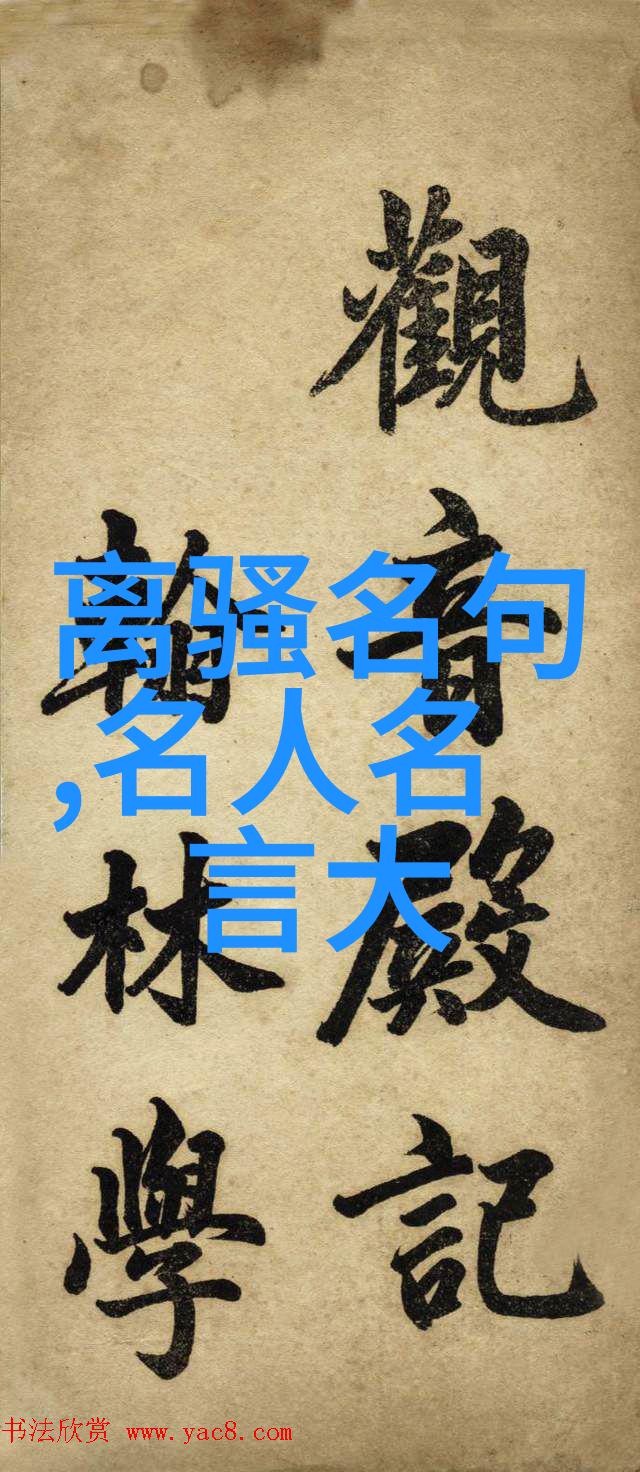 觀音殿記
翰林學
离骚名句
,名人名
言大
书法欣赏 www.yac8.com